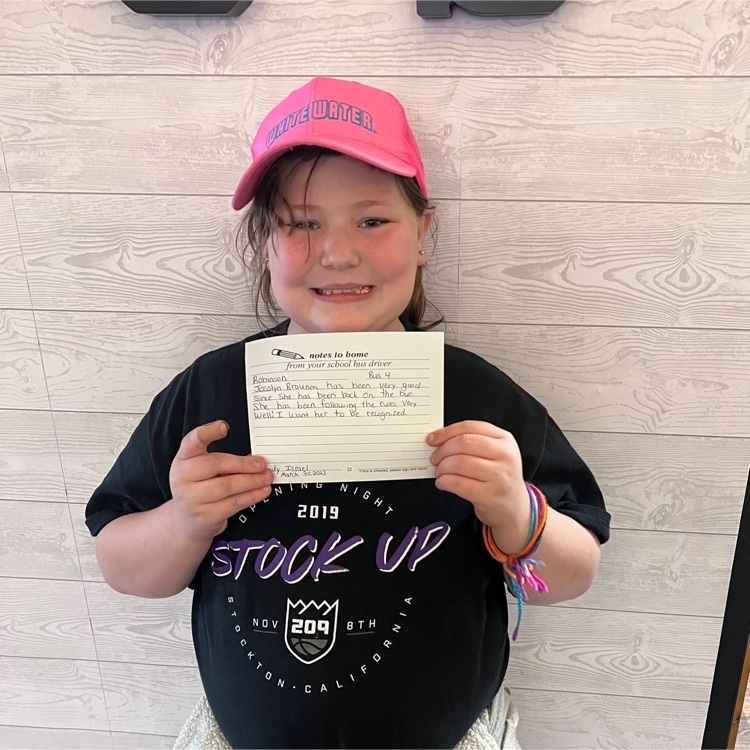 WHITE WATER
notes to home
from your school bus driver
Robinson Bus 4
Jocelyn Brounm has been very good
since she has been back on the bus.
She has been following the rules very
well! I want her to be recognized.
Ismel
March 30, 2023
If this is checked, please sign and return
OPENING NIGHT
2019
STOCK UP
NOV 209 8TH
STOCKTON · CALIFORNIA